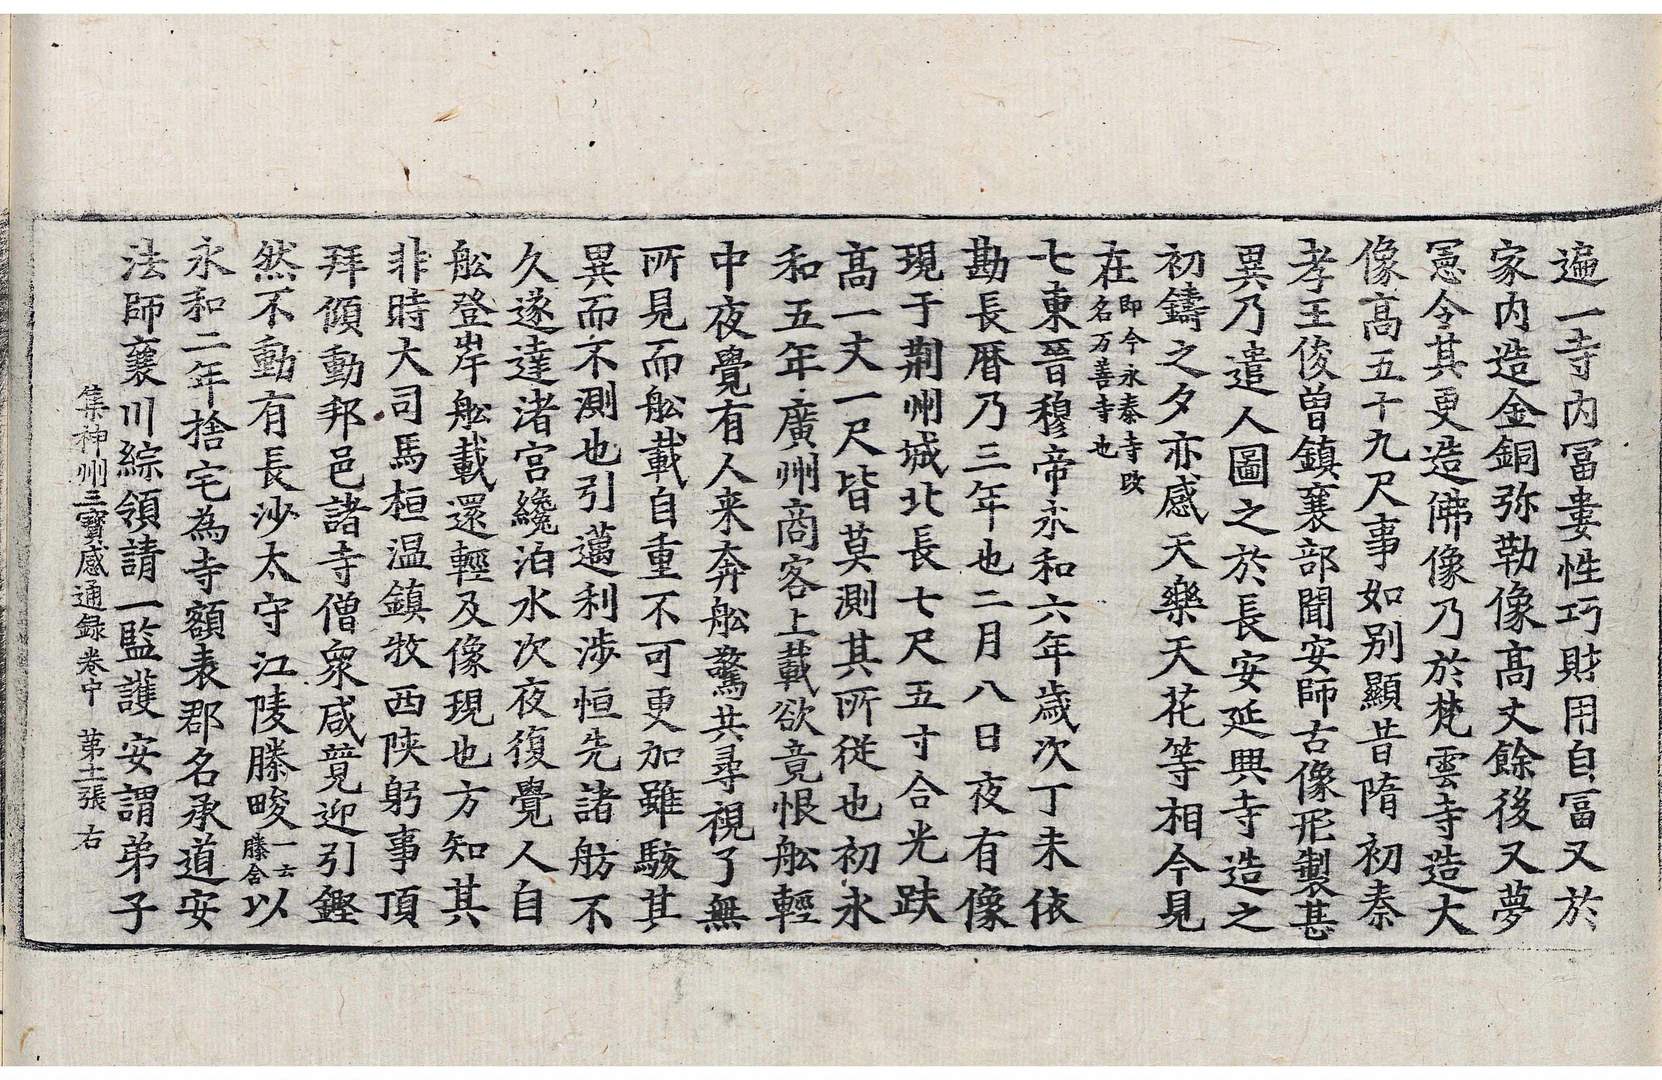 遍一寺內冨婁性巧財用自冨又於
家內造金銅弥勒像高丈餘後又夢
憲令其更造佛像乃於梵雲寺造大
像高五十九尺事如别顯昔隋初秦
孝王俊曽鎮襄部聞安師古像形製甚
異乃遣人圖之於長安延興寺造之
初鑄之夕亦感天樂天花等相今見
在即今永泰寺改名万善寺也
七東晉穆帝永和六年歲次丁未依
勘長暦乃三年也二月八日夜有像
現于荆州城北長七尺五寸合光趺
高一丈一尺皆莫測其所従也初永
和五年廣州商客上載欲竟恨舩輕
中夜覺有人来奔舩驚共尋視了無
所見而舩載自重不可更加雖駭其
異而不測也引邁利涉恒先諸舫不
久遂達渚宫纔泊水次夜復覺人自
舩登岸舩載還輕及像現也方知其
非時大司馬桓温鎮牧西陝躬事頂
拜傾動邦邑諸寺僧衆咸競迎引鏗
然不動有長沙太守江陵滕畯一云滕含以
永和二年捨宅為寺額表郡名承道安
法師襄川綜領請一監護安謂弟子
集神州三寶感通録卷中　第十二張　右